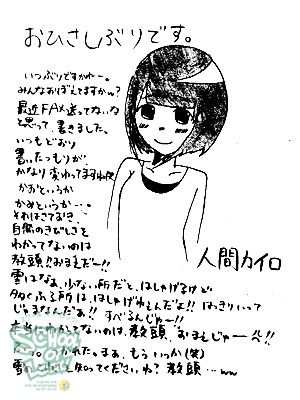 おひさしぶりです。
いつぶりですかねー。
みんなおぼえてますかw?
最近FAX送ってないな
と思って、書きました。
いつもどおり
書いたつもりが、
かなり変わってますね
かおというか
かみというか…。
それはさておき、
自然のきびしさを
わかってないのは
教頭!!おまえだー!!
雪はなぁ、少ない所だと、はしゃげるけど
多くふる所は、はしゃげねぇんだよ!!はっきりいって
じゃまなんだぁ!!すべるんじゃー!!
本当にわかってないのは、教頭、おまえじゃー!!
つかれた。まぁ、もういっか(笑)
雪
知ってくださいね?教頭…ww
人間カイロ
SCHOOL OF LOCK!